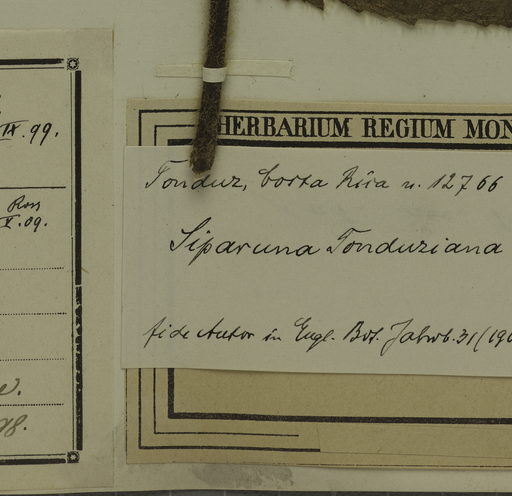 IX. 99.
Ross
X. 09.
HERBARIUM REGIUM MON
Tonduz, Costa Rica n. 12766
Siparuna Tonduziana
fide Autor in Engl. Bot. Jahrb. 31 (190
98.